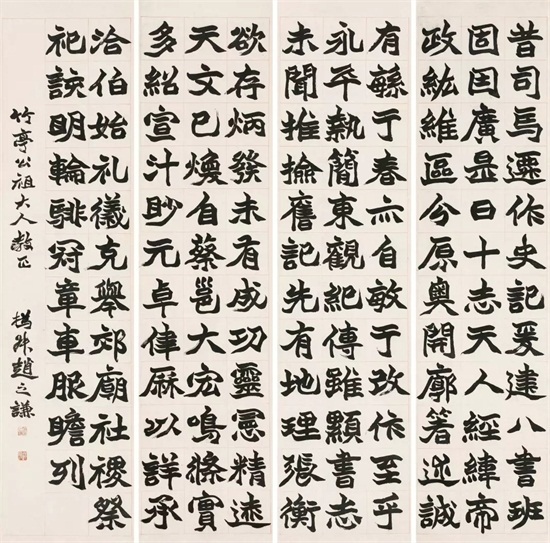 昔司馬遷作史記爰建八書班
固因廣是曰十志天人經緯帝
政紘維區今原奧開廓著述誠
有繇于春亦自敏于改作至乎
永平執簡東觀紀傳雖顯書志
未聞推撿舊記先有地理張衡
欲存炳發未有成功靈憲精遠
天文已煥自蔡邕大宏鳴條實
多紹宣汁妙元卓律厤以詳承
洽伯始礼儀克舉郊廟社稷祭
祀該明輪騑冠章車服贍列
竹亭公祖大人教正 撝叔趙之謙